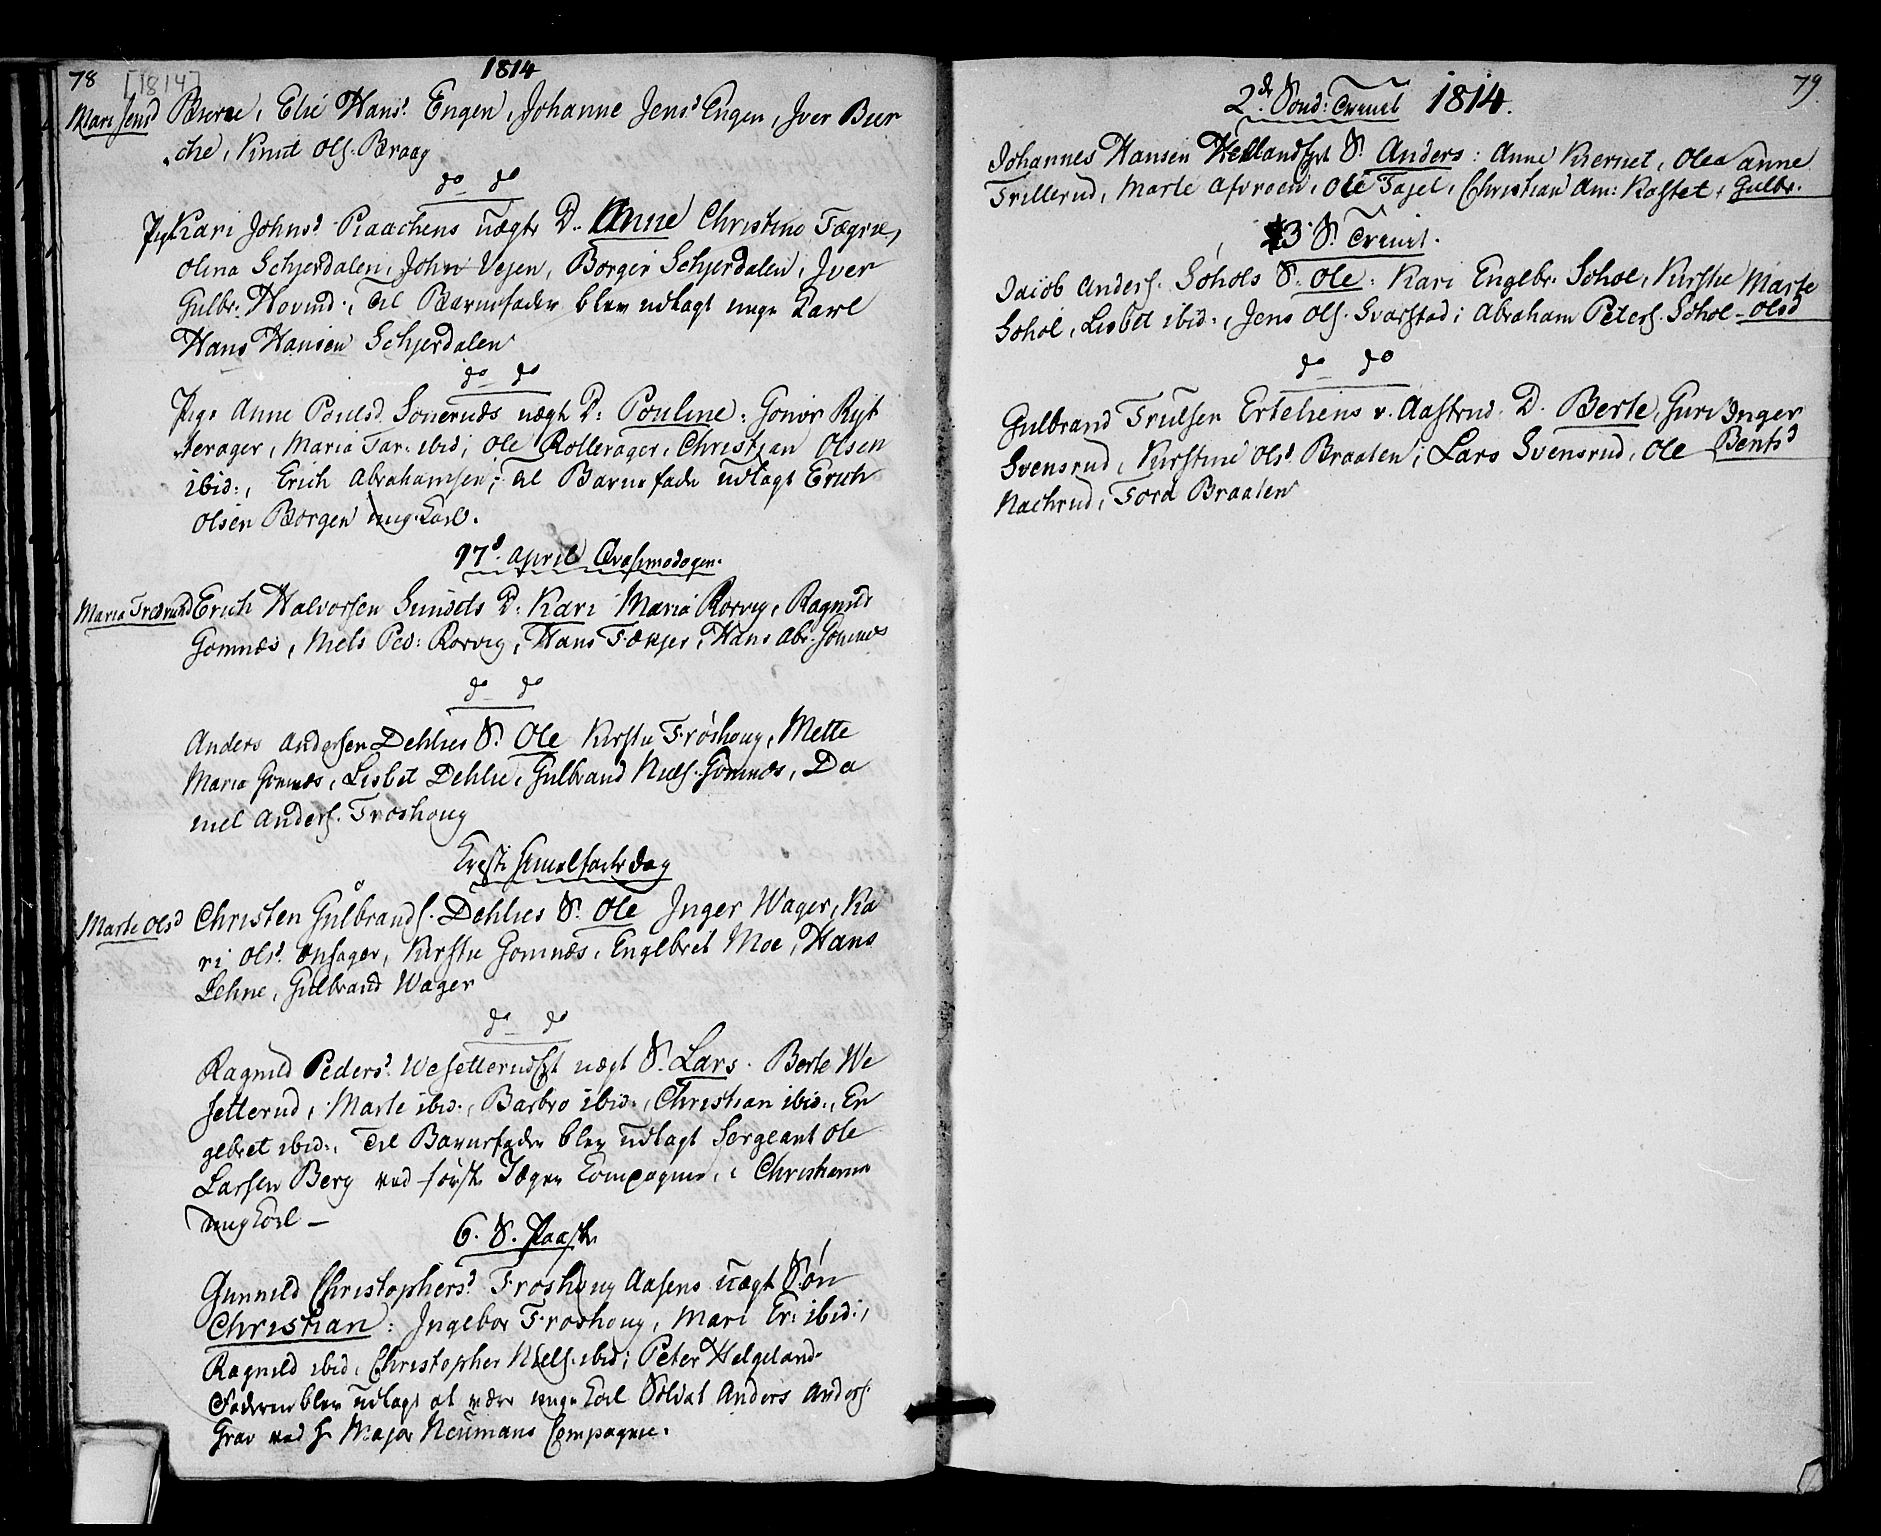 78 [1814] 1814
Mari Jensd Bærne, Elie Hansd. Engen, Johanne Jensd Engen, Jver Bier
che, Knud Ols. Braag
do do
Pig Kari Johnsd Raachens uægte D. Anne Christine Fægrie,
olina Schjerdalen, John Vejen, Borger Schjerdalen, Jver
Gulbr. Hovind., Til Barnefader blev udlagt unge Karl
Hans Hansen Schjerdalen
do do
Pige Anne Poulsd Soneruds uægt D: Pouline: Gonor Ryt
terager, Maria Tar. ibid; Ole Rollerager, Christian Olsen
ibid:, Erich Abrahamsen; Til Barnefader udlagt Erich
Olsen Borgen ung Karl.
17d. April Qvasimodogen.
Maria Frørund Erich Halvorsen Sundets D: Kari Maria Rorvig, Ragnild
Gomnæs, Niels Ped: Rorvig, Hans Fækjer, Hans Abr. Gomnes
do do
Anders Andersen Dehlies S. Ole Kirstie Fröshoug, Mette
Maria Gomnæs, Lisbet Dehlie, Gulbrand Niels. Gomnæs, Da
niel Anders. Froshoug
Christi Himelfarts dag
Marte Olsd Christen Gulbrands. Dehlies S. Ole Inger Wager, Ka
ri Olsd. Ønsager, Kirstie Gomnæs, Englbret Moe, Hans
Lehne, Gulbrand Wager
do do
Ragnild Pedersd. Wesetterudejet uægt S. Lars. Berte We
setterud, Marte ibid., Barbro ibid:, Christian ibid:, En
gelbret ibid:, Til Barnefader blev udlagt Sergeant Ole
Larsen Berg ved første Jæger Compagnie i Christiania
ung Karl –
6. S. Paaske
Gunnild Christophersd. Froshoug Aasens uægt Sön
Christian: Ingebor Froshoug, Mari Er: ibid:,
Ragnild ibid, Christopher Niels. ibid; Peter Helgeland.
Faderen blev udlagt at være unge Karl Soldat Anders Anders.
Grav ved Hr Major Neumans Compagnie.
79.
2d. Sond: Trinit 1814.
Johannes Hansen Hellandsejet S. Anders: Anne Kiernet, Olea Anne
Trillerud, Marte Afvroen, Ole Fajel, Christian Am: Kastet, Gulbr.
3 S. Trinit.
Jaiob Anders. Sohols S. Ole: Kari Englbr. Sohol, Kirstie Marte
Sohol, Lisbet ibid:, Jens Ols. Svarstad; Abraham Peters. Sohol – Olsd
do do
Gulbrand Trulsen Erteliens v. Aastrud. D. Berte, Guri Inger
Svensrud, Kirstine Olsd. Braaten; Lars Svensrud, Ole Bentsd
Nachrud, Tord Braaten